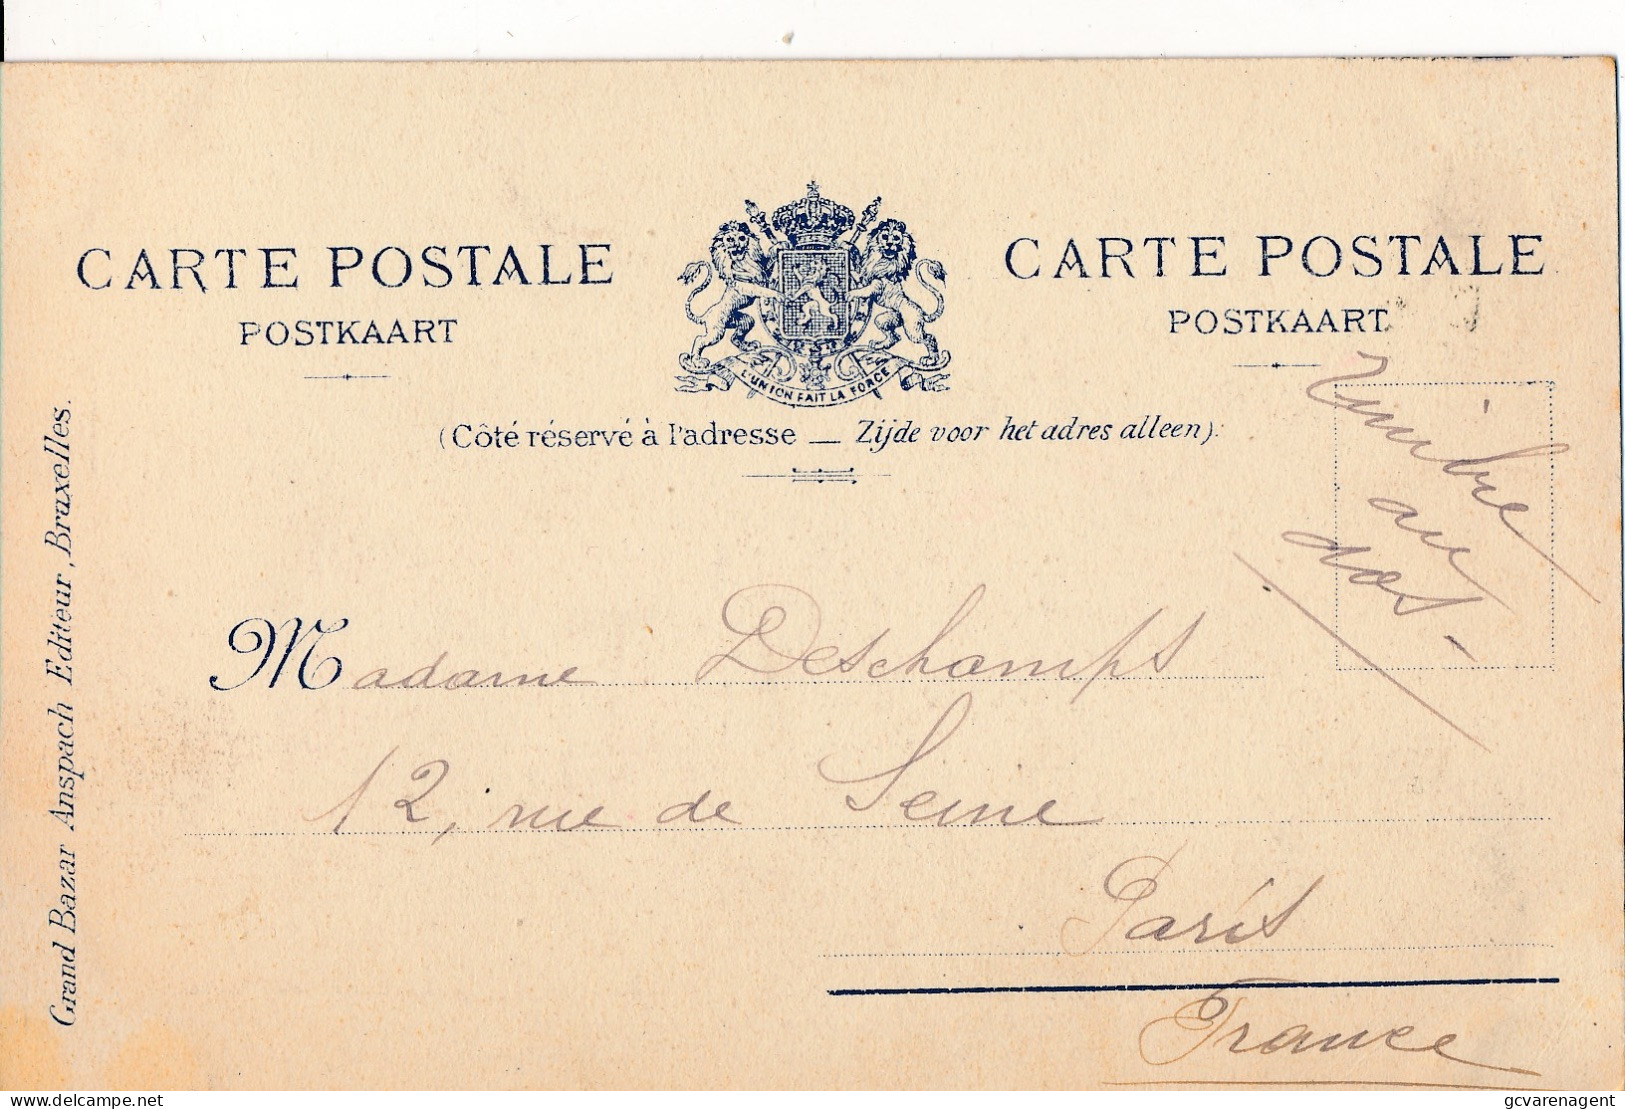 CARTE POSTALE
POSTKAART
L'UNION FAIT LA FORCE
CARTE POSTALE
POSTKAART
(Côté réservé à l'adresse — Zijde voor het adres alleen).
Timbre
au
dos
Madame Deschamps
12, rue de Seine
Paris
France
Grand Bazar Anspach Editeur, Bruxelles.
gcvarenagent